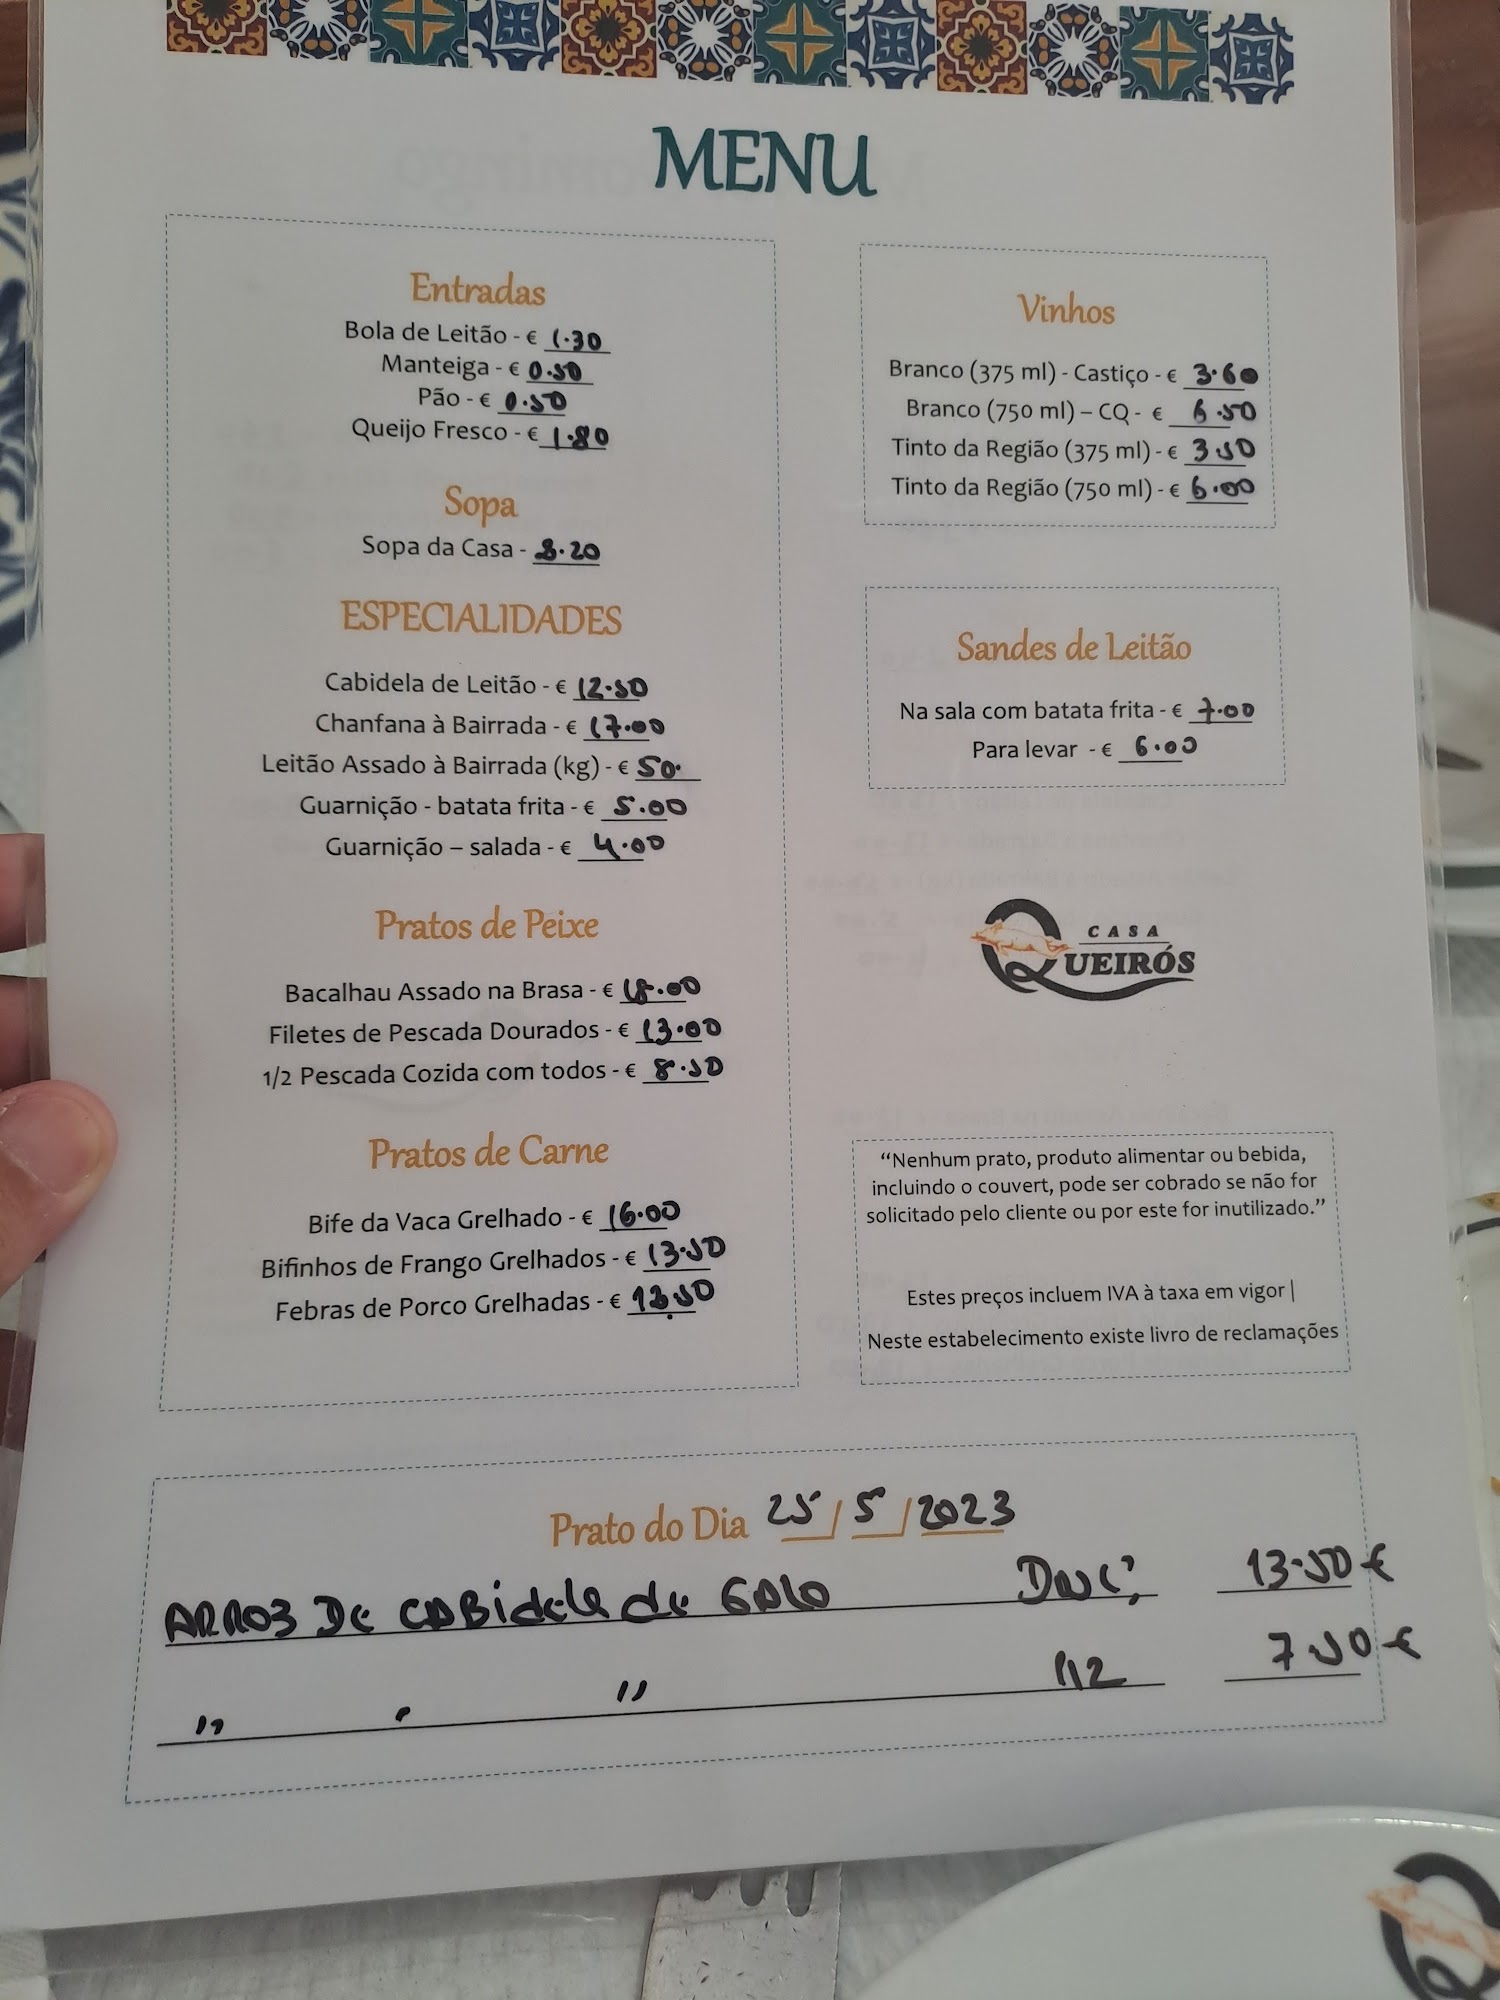 MENU
Entradas
Bola de Leitão - € 1.30
Manteiga - € 0.50
Pão - € 0.50
Queijo Fresco - € 1.80
Sopa
Sopa da Casa - 2.20
ESPECIALIDADES
Cabidela de Leitão - € 12.50
Chanfana à Bairrada - € 17.00
Leitão Assado à Bairrada (kg) - € 50.
Guarnição - batata frita - € 5.00
Guarnição – salada - € 4.00
Pratos de Peixe
Bacalhau Assado na Brasa - € 18.00
Filetes de Pescada Dourados - € 13.00
1/2 Pescada Cozida com todos - € 8.50
Pratos de Carne
Bife da Vaca Grelhado - € 16.00
Bifinhos de Frango Grelhados - € 13.50
Febras de Porco Grelhadas - €
Vinhos
Branco (375 ml) - Castiço - € 3.60
Branco (750 ml) – CQ - € 6.50
Tinto da Região (375 ml) - € 3.50
Tinto da Região (750 ml) - € 6.00
Sandes de Leitão
Na sala com batata frita - € 7.00
Para levar - € 6.00
CASA
QUEIRÓS
“Nenhum prato, produto alimentar ou bebida,
incluindo o couvert, pode ser cobrado se não for
solicitado pelo cliente ou por este for inutilizado.”
Estes preços incluem IVA à taxa em vigor |
Neste estabelecimento existe livro de reclamações
Prato do Dia 25/5/2023
ARROZ De CABidela de GALO 13.50€
" " " 1/2 7.50€